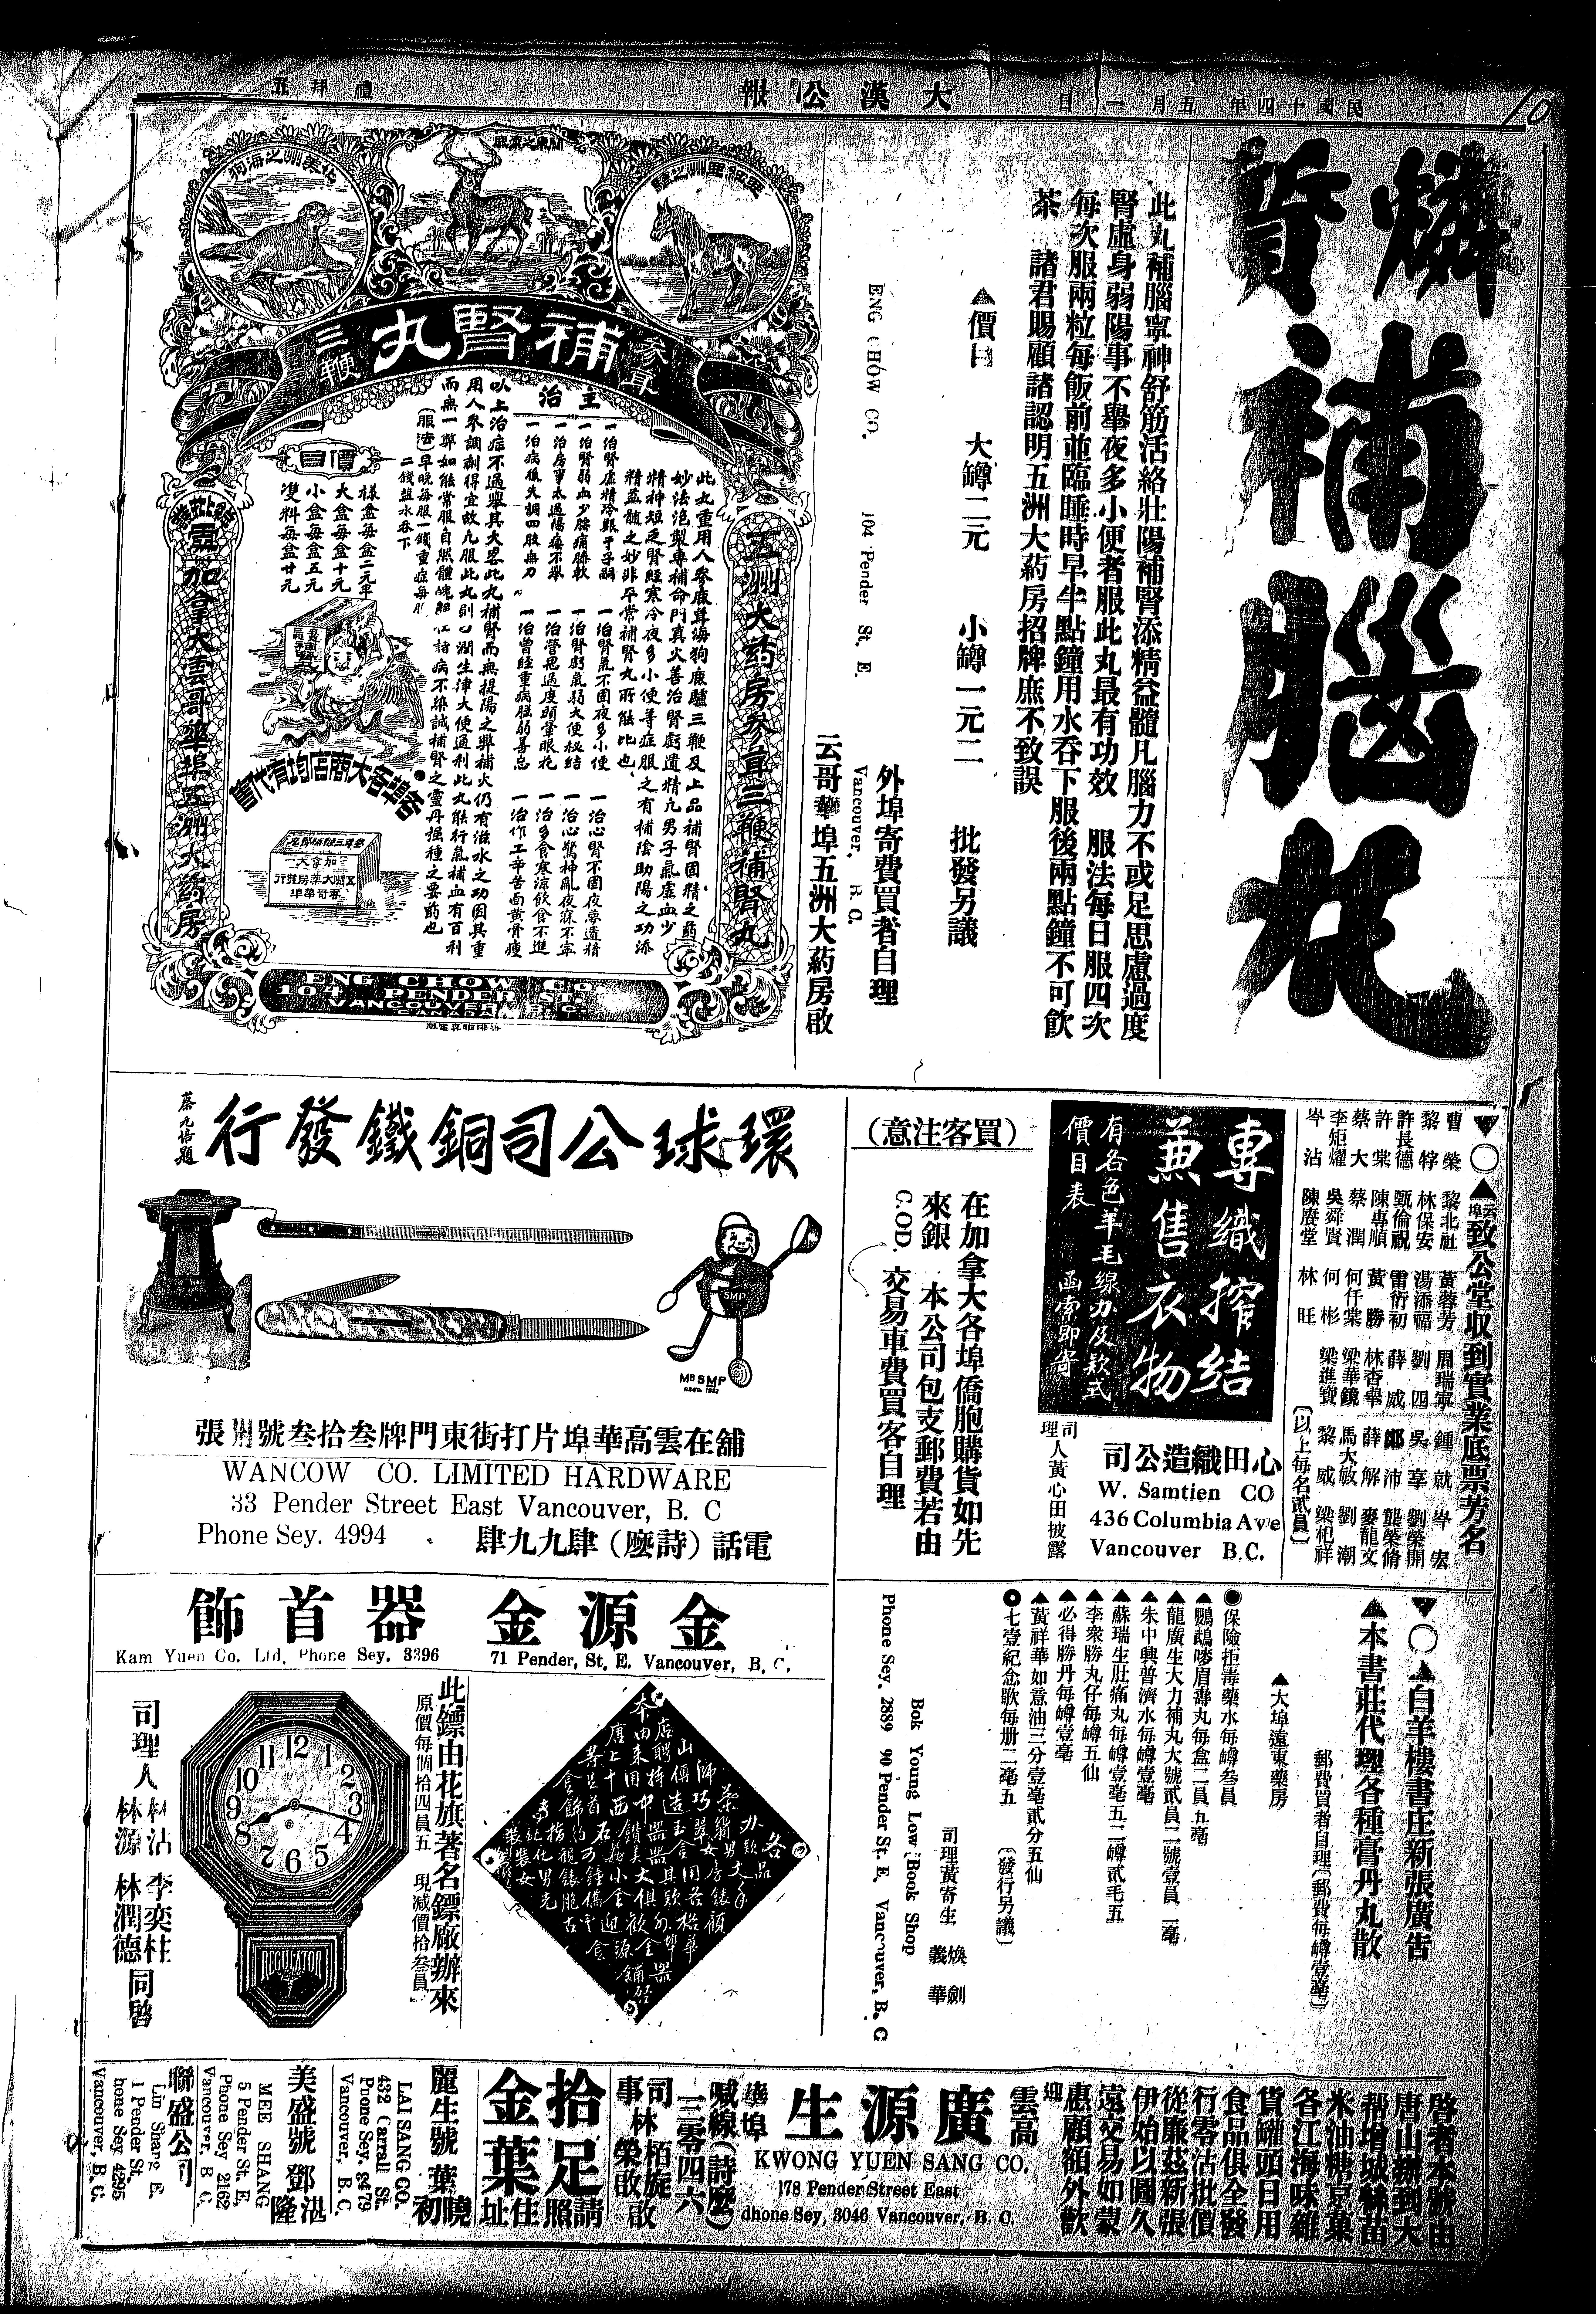 民國十四年五月一日
大漢公報
禮拜五
燐質補腦丸
此丸補腦寧神舒筋活絡壯陽補腎添精益髓凡腦力不或足思慮過度
腎虛身弱陽事不舉夜多小便者服此丸最有功效 服法每日服四次
每次服兩粒每飯前並臨睡時早午點鐘用水吞下服後兩點鐘不可飲
茶 諸君賜顧諸認明五洲大葯房招牌庶不致誤
▲價目 大罇二元 小罇一元二 批發另議
外埠寄費買者自理
ENG CHOW CO. 104 Pender St. E. Vancouver, B.C.
云哥華埠五洲大葯房啟
北美洲之海狗
關東之鹿
參茸
補腎丸
三鞭
主治
此丸重用人參鹿茸海狗鹿驢三鞭及上品補腎固精之葯
妙法泡製專補命門真火善治腎虧遺精凡男子氣虛血少
精神短乏腎經寒冷夜多小便等症服之有補陰助陽之功添
精益髓之妙非平常補腎丸所能比也
一治腎虛精冷艱于子嗣 一治腎氣不固夜多小便 一治心腎不固夜夢遺精
一治腎弱血少腰痛腳軟 一治腎虧氣弱大便秘結 一治心驚神亂夜寐不寧
一治房事太過陽痿不舉 一治營思過度頭暈眼花 一治多食寒涼飲食不進
一治病後失調四肢無力 一治曾經重病腦弱善忘 一治作工辛苦面黃骨瘦
以上治症不過舉其大畧此丸補腎而無提陽之弊補火仍有滋水之功因其重
用人參調劑得宜故凡服此丸則口潤生津大便通利此丸能行氣補血有百利
而無一弊如能常服自然體魄
誠補腎之靈丹强種之要葯也
(服法)早晚每服一錢重症每服
二錢鹽水吞下
價目
樣盒每盒二元半
大盒每盒十元
小盒每盒五元
雙料每盒廿元
各埠各大商店均有代售
五洲大葯房參茸三鞭補腎丸
加拿大雲哥華埠五洲大葯房
ENG CHOW CO
104 PENDER ST. E.
VANCOUVER, B.C.
CANADA
▼○▲云埠致公堂收到實業底票芳名
曹榮 黎北社 黃蓉芳 周瑞寧 鍾就 岑宏
黎犉 林保安 湯添福 劉四 吳享 劉榮開
許長德 甄倫祝 雷衍初 薛威 鄭沛 龔榮脩
許棠 陳專順 黃勝 林杏舉 薛解 麥龍文
蔡大 蔡潤 何仟棠 梁華鏡 馬大敏 劉潮
李矩燿 吳舜賢 何彬 梁進寶 黎威 梁杞祥
岑沾 陳賡堂 林旺
〔以上每名貳員〕
專織搾結
兼售衣物
有各色羊毛線力及款式
價目表 函索即寄
心田織造公司
W. Samtien CO
436 Columbia Ave
Vancouver B.C.
司理人黃心田披露
(買客注意)
在加拿大各埠僑胞購貨如先
來銀 本公司包支郵費若由
C.O.D. 交易車費買客自理
環球公司銅鐵發行
蔡元培題
SMP
舖在雲高華埠片打街東門牌叁拾叁號
WANCOW CO. LIMITED HARDWARE
33 Pender Street East Vancouver, B. C
Phone Sey. 4994
電話(詩麽)肆九九肆
▼○▲白羊樓書庄新張廣告
▲本書莊代理各種膏丹丸散
郵費買者自理〔郵費每罇壹毫〕
▲大埠遠東藥房
●保險拒毒藥水每罇叁員
▲鸚鵡嘜眉壽丸每盒二員五毫
▲龍廣生大力補丸大號貳員二號壹員二毫
▲朱中興普濟水每罇壹毫
▲蘇瑞生肚痛丸每罇壹毫五二罇貳毛五
▲李衆勝丸仔每罇五仙
▲必得勝丹每罇壹毫
▲黃祥華如意油三分壹毫貳分五仙
○七壹紀念歌每册二毫五 〔發行另議〕
司理黃寄生 煥劍 義華
Bok Young Low Book Shop
Phone Sey. 2889 90 Pender St. E. Vancouver, B. C
金源金器首飾
Kam Yuen Co. Ltd. Phone Sey. 3396 71 Pender, St. E. Vancouver, B. C.
此鏢由花旗著名鏢廠辦來
原價每個拾四員五 現減價拾叁員
REGULATOR
司理人 林沾 林源 李奕柱 林潤德 同啓
啓者本號由
唐山辦到大
帮增城絲苗
米油糖京菓
各江海味雜
貨罐頭日用
食品俱全發
行零沾批價
從廉茲新張
伊始以圖久
遠交易如蒙
惠顧額外歡
迎
雲高華埠
廣源生
KWONG YUEN SANG CO.
178 Pender Street East
Phone Sey, 3046 Vancouver, B. C.
喊線(詩麽)
三零四六
司事 林栢旋 林榮啟 啟
拾足金葉
請照住址
麗生號 葉曉初
LAI SANG CO.
432 Carrall St.
Phone Sey. 8479
Vancouver, B. C.
美盛號 鄧湛隆
MEE SHANG
5 Pender St E,
Phone Sey 2162
Vancouver, B C.
聯盛公司
Lin Shang E.
1 Pender St,
hone Sey 4295
Vancouver, B. C.